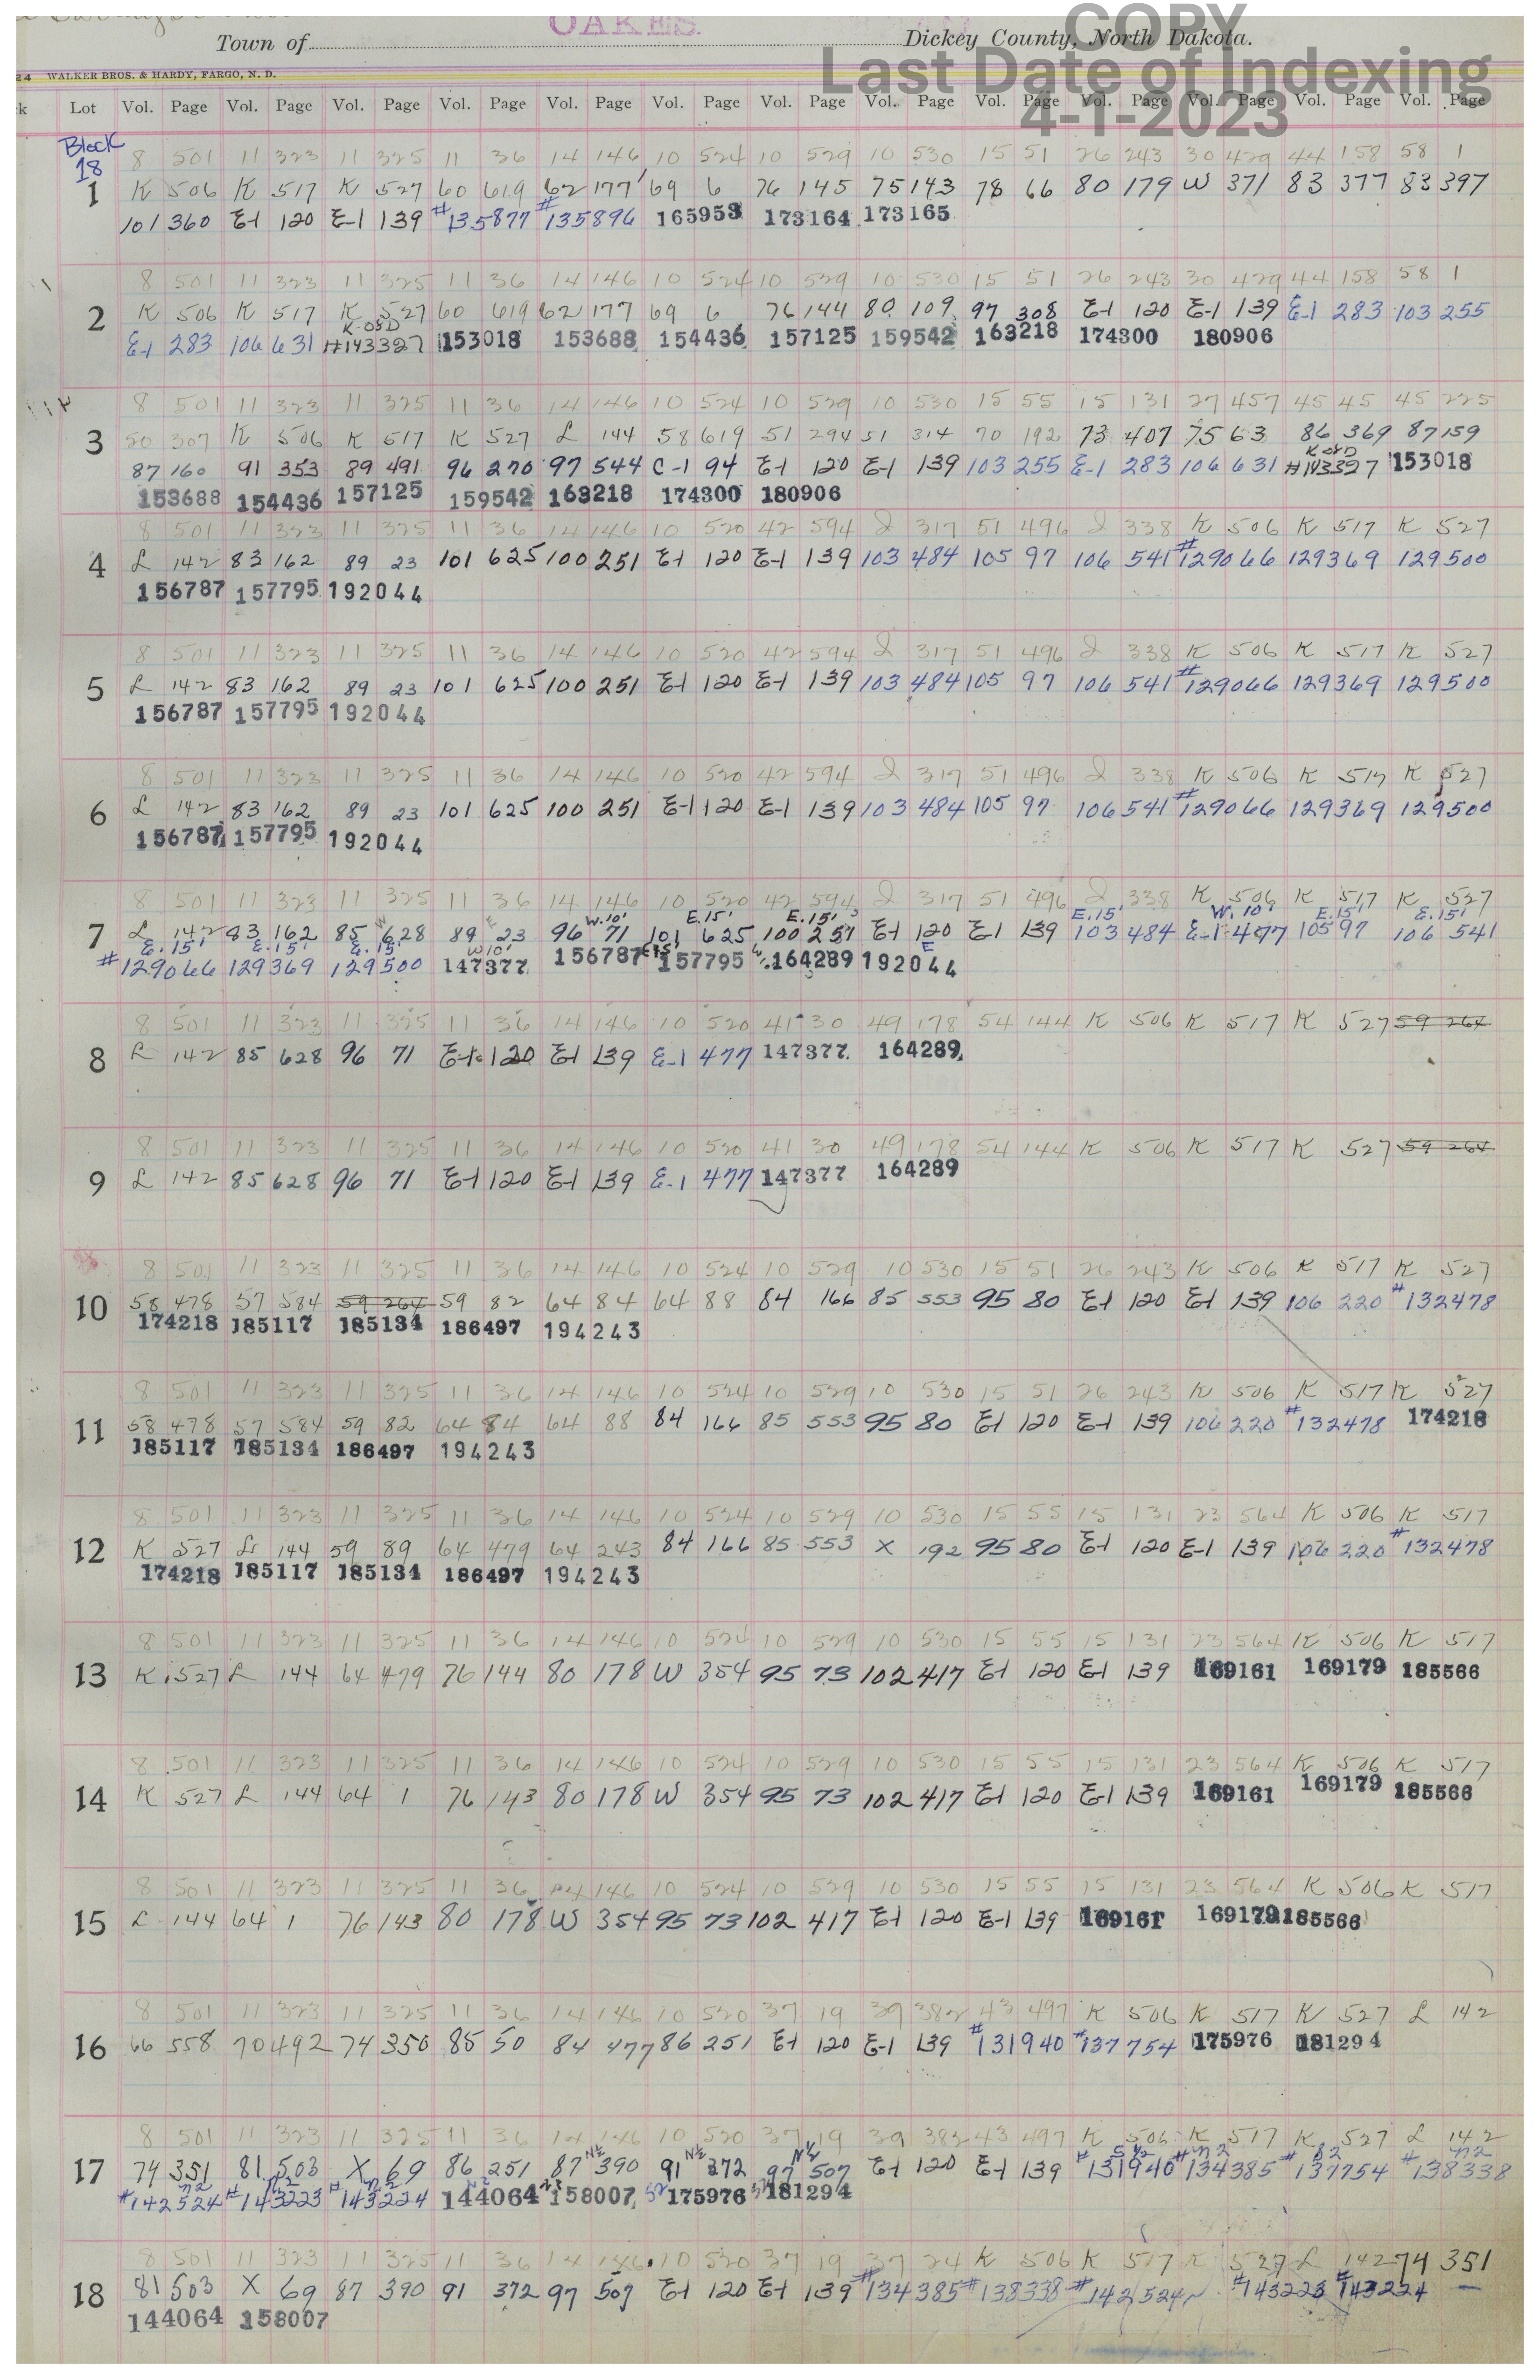 OAKES.
COPY
Town of Dickey County, North Dakota.
Last Date of Indexing
24 WALKER BROS. & HARDY, FARGO, N. D.
k Lot Vol. Page Vol. Page Vol. Page Vol. Page Vol. Page Vol. Page Vol. Page Vol. Page Vol. Page Vol. Page Vol. Page Vol. Page Vol. Page
4-1-2023
Block
18
8 501 11 323 11 325 11 36 14 146 10 524 10 529 10 530 15 51 26 243 30 429 44 158 58 1
1 K 506 K 517 K 527 60 619 62 177 69 6 76 145 75 143 78 66 80 179 W 371 83 377 83 397
101 360 E-1 120 E-1 139 #135877 #135896 165953 173164 173165
8 501 11 323 11 325 11 36 14 146 10 524 10 529 10 530 15 51 26 243 30 429 44 158 58 1
2 K 506 K 517 K 527 60 619 62 177 69 6 76 144 80 109 97 308 E-1 120 E-1 139 E-1 283 103 255
E-1 283 106 631 #143327 153018 153688 154436 157125 159542 163218 174300 180906
8 501 11 323 11 325 11 36 14 146 10 524 10 529 10 530 15 55 15 131 27 457 45 45 45 225
3 50 307 K 506 K 517 K 527 L 144 58 619 51 294 51 314 70 192 73 407 75 63 86 369 87 159
87 160 91 353 89 491 96 270 97 544 C-1 94 E-1 120 E-1 139 103 255 E-1 283 106 631 #143327 153018
153688 154436 157125 159542 163218 174300 180906
8 501 11 323 11 325 11 36 14 146 10 520 42 594 2 317 51 496 2 338 K 506 K 517 K 527
4 L 142 83 162 89 23 101 625 100 251 E-1 120 E-1 139 103 484 105 97 106 541 #129066 129369 129500
156787 157795 192044
8 501 11 323 11 325 11 36 14 146 10 520 42 594 2 317 51 496 2 338 K 506 K 517 K 527
5 L 142 83 162 89 23 101 625 100 251 E-1 120 E-1 139 103 484 105 97 106 541 #129066 129369 129500
156787 157795 192044
8 501 11 323 11 325 11 36 14 146 10 520 42 594 2 317 51 496 2 338 K 506 K 517 K 527
6 L 142 83 162 89 23 101 625 100 251 E-1 120 E-1 139 103 484 105 97 106 541 #129066 129369 129500
156787 157795 192044
8 501 11 323 11 325 11 36 14 146 10 520 42 594 2 317 51 496 2 338 K 506 K 517 K 527
W.10' E.15' E.15' E.15' W.10' E.15' E.15'
7 L 142 83 162 85 628 89 23 96 71 101 625 100 251 E-1 120 E-1 139 103 484 E-1 477 105 97 106 541
E.15' E.15' E.15' W10'
#129066 129369 129500 147377 156787 157795 164289 192044
8 501 11 323 11 325 11 36 14 146 10 520 41 30 49 178 54 144 K 506 K 517 K 527 59 264
8 L 142 85 628 96 71 E-1 120 E-1 139 E-1 477 147377 164289
8 501 11 323 11 325 11 36 14 146 10 520 41 30 49 178 54 144 K 506 K 517 K 527 59 264
9 L 142 85 628 96 71 E-1 120 E-1 139 E-1 477 147377 164289
8 501 11 323 11 325 11 36 14 146 10 524 10 529 10 530 15 51 26 243 K 506 K 517 K 527
10 58 478 57 584 59 264 59 82 64 84 64 88 84 166 85 553 95 80 E-1 120 E-1 139 106 220 #132478
174218 185117 185134 186497 194243
8 501 11 323 11 325 11 36 14 146 10 524 10 529 10 530 15 51 26 243 K 506 K 517 K 527
11 58 478 57 584 59 82 64 84 64 88 84 166 85 553 95 80 E-1 120 E-1 139 106 220 #132478 174218
185117 185134 186497 194243
8 501 11 323 11 325 11 36 14 146 10 524 10 529 10 530 15 55 15 131 23 564 K 506 K 517
12 K 527 L 144 59 89 64 479 64 243 84 166 85 553 X 192 95 80 E-1 120 E-1 139 106 220 #132478
174218 185117 185134 186497 194243
8 501 11 323 11 325 11 36 14 146 10 524 10 529 10 530 15 55 15 131 23 564 K 506 K 517
13 K 527 L 144 64 479 76 144 80 178 W 354 95 73 102 417 E-1 120 E-1 139 169161 169179 185566
8 501 11 323 11 325 11 36 14 146 10 524 10 529 10 530 15 55 15 131 23 564 K 506 K 517
14 K 527 L 144 64 1 76 143 80 178 W 354 95 73 102 417 E-1 120 E-1 139 169161 169179 185566
8 501 11 323 11 325 11 36 14 146 10 524 10 529 10 530 15 55 15 131 23 564 K 506 K 517
15 L 144 64 1 76 143 80 178 W 354 95 73 102 417 E-1 120 E-1 139 169161 169179 185566
8 501 11 323 11 325 11 36 14 146 10 520 37 19 39 382 43 497 K 506 K 517 K 527 L 142
16 66 558 70 492 74 350 85 50 84 477 86 251 E-1 120 E-1 139 #131940 #137754 175976 181294
8 501 11 323 11 325 11 36 14 146 10 520 37 19 39 382 43 497 K 506 K 517 K 527 L 142
17 74 351 81 503 X 69 86 251 87 390 91 372 97 507 E-1 120 E-1 139 #131940 #134385 #137754 #138338
#142524 #143223 #143224 144064 158007 175976 181294
8 501 11 323 11 325 11 36 14 146 10 520 37 19 37 24 K 506 K 517 K 527 L 142 74 351
18 81 503 X 69 87 390 91 372 97 507 E-1 120 E-1 139 #134385 #138338 #142524 #143223 #143224
144064 158007